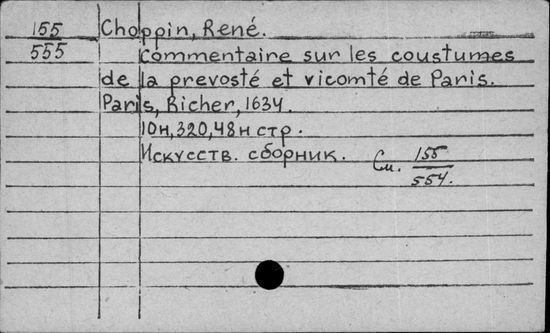 155 Choppin, René.
555 Commentaire sur les coustumes
de la prevosté et vicomté de Paris.
Paris, Richer, 1634.
10н, 320, 48н стр.
Искусств. сборник. См. 155
554.